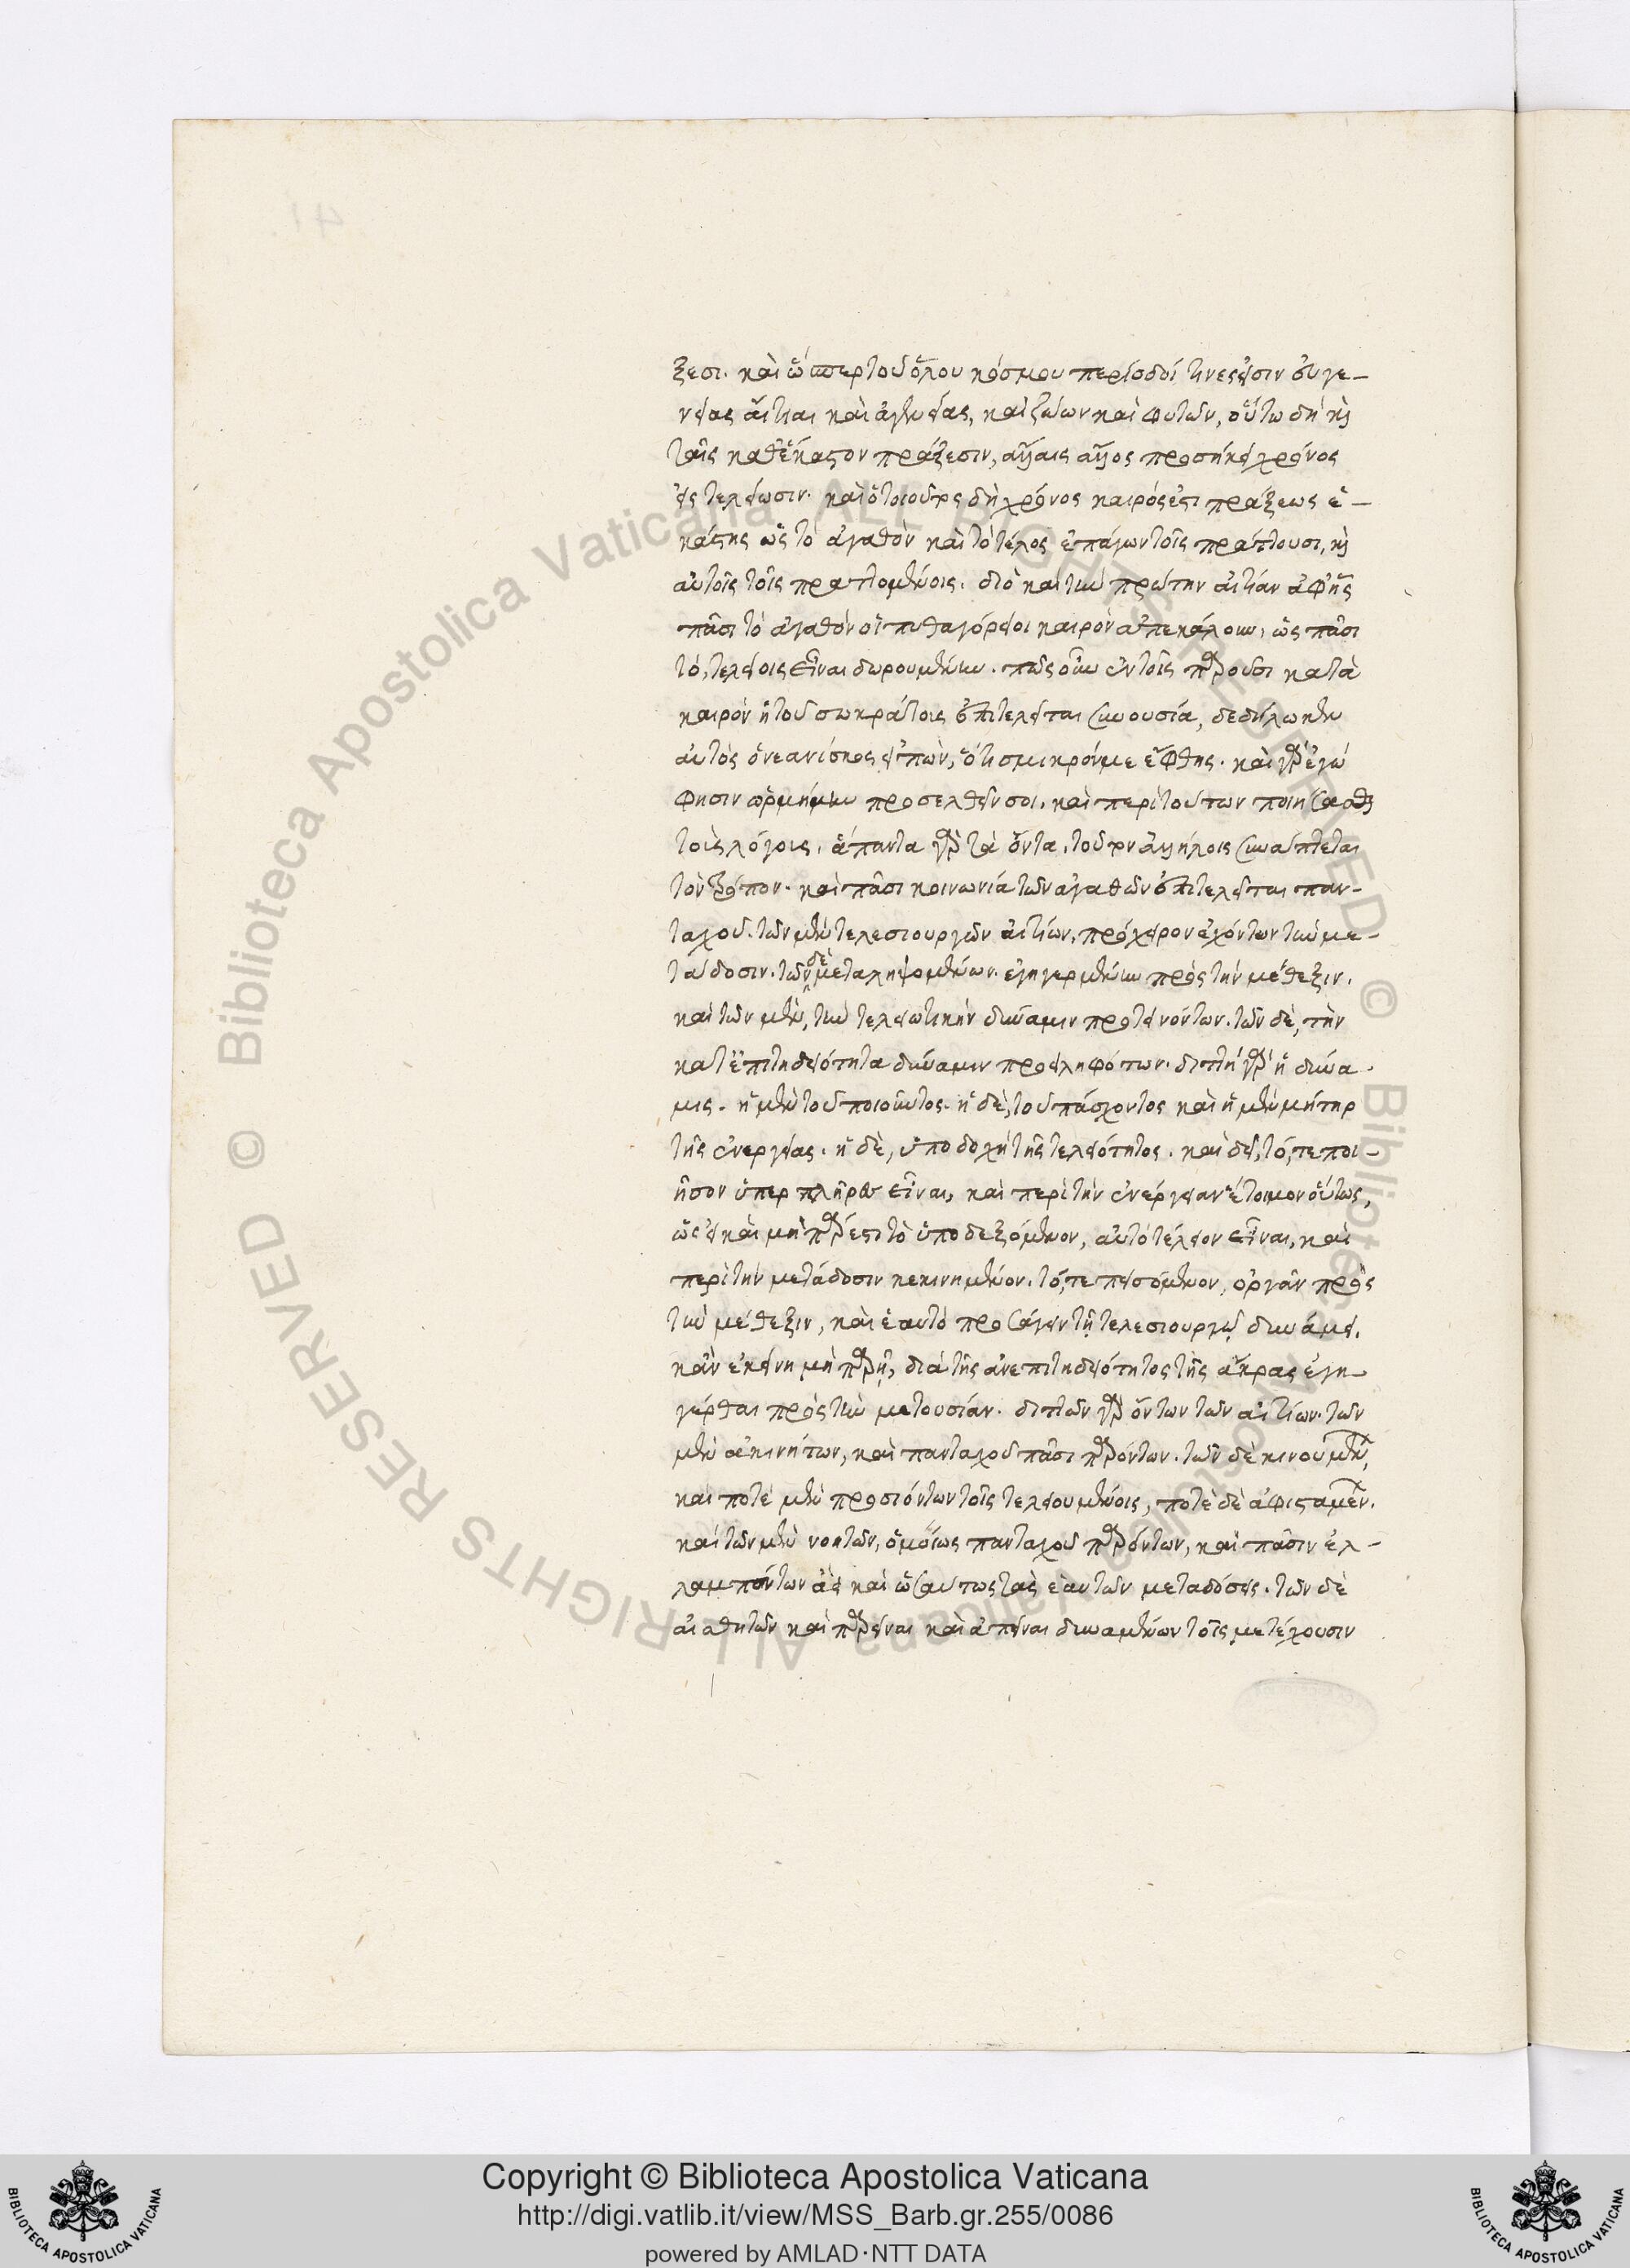 ξεσι. καὶ ὥσπερ τοῦ ὅλου κόσμου περίοδοί τινες εἰσιν εὐγε-
νείας αἴτιαι καὶ ἀγενείας, καὶ ζώων καὶ φυτῶν, οὕτω δὴ κ̀
ταῖς καθέκαστον πράξεσιν, ἄλλαις ἄλλος προσήκει χρόνος
εἰς τελείωσιν. καὶ ὁ τοιοῦτος δὴ χρόνος καιρός ἐστι πράξεως ἑ-
κάστης ὡς τὸ ἀγαθὸν καὶ τὸ τέλος ἐπάγων τοῖς πράττουσι, κ̀
αὐτοῖς τοῖς πραττομένοις. διὸ καὶ τὴν πρώτην αἰτίαν ἀφῆς
πᾶσι τὸ ἀγαθὸν οἱ πυθαγόρειοι καιρὸν ἀπεκάλουν, ὡς πᾶσι
τὸ, τελείοις εἶναι δωρουμένην. πῶς οὖν ἐν τοῖς παροῦσι κατὰ
καιρὸν ἡ τοῦ σωκράτους ἐπιτελεῖται συνουσία, δεδήλωκεν
αὐτὸς ὁ νεανίσκος εἰπὼν, ὅτι σμικρόν με ἔφθης. καὶ γὰρ ἐγώ
φησιν ὡρμήμην προσελθεῖν σοι. καὶ περὶ τούτων ποιήσασθαι
τοὺς λόγους. ἅπαντα γὰρ τὰ ὄντα, τοῦτον ἀλλήλοις συνάπτεται
τὸν τρόπον. καὶ πᾶσι κοινωνία τῶν ἀγαθῶν ἐπιτελεῖται παν-
ταχοῦ. τῶν μὲν τελεσιουργῶν αἰτίων, πρόχειρον ἐχόντων τὴν με-
τάδοσιν. τῶν δὲ μεταληψομένων. ἐγηγερμένων πρὸς τὴν μέθεξιν.
καὶ τῶν μὲν, τὴν τελειωτικὴν δύναμιν προτεινόντων. τῶν δὲ, τὴν
κατ' ἐπιτηδειότητα δύναμιν προσειληφότων. διττὴ γὰρ ἡ δύνα-
μις. ἡ μὲν τοῦ ποιοῦντος. ἡ δὲ, τοῦ πάσχοντος καὶ ἡ μὲν μήτηρ
τῆς ἐνεργείας. ἡ δὲ, ὑποδοχὴ τῆς τελειότητος. καὶ δεῖ, τό, τε ποι-
ῆσον ὑπερπλῆρες εἶναι, καὶ περὶ τὴν ἐνέργειαν ἕτοιμον οὕτως,
ὡς εἰ καὶ μὴ πάρεστι τὸ ὑποδεξόμενον, αὐτοτέλειον εἶναι, καὶ
περὶ τὴν μετάδοσιν κεκινημένον. τό, τε πεισόμενον, ὀργᾶν πρὸς
τὴν μέθεξιν, καὶ ἑαυτὸ προσάγειν τῇ τελεσιουργῷ δυνάμει.
κἂν ἐκείνη μὴ παρῇ, διὰ τῆς ἀνεπιτηδειότητος τῆς ἄκρας ἐγη-
γέρθαι πρὸς τὴν μετουσίαν. διττῶν γὰρ ὄντων τῶν αἰτίων. τῶν
μὲν ἀκινήτων, καὶ πανταχοῦ πᾶσι παρόντων. τῶν δὲ κινουμέν,
καὶ ποτὲ μὲν προσιόντων τοῖς τελειουμένοις, ποτὲ δὲ ἀφισταμέν.
καὶ τῶν μὲν νοητῶν, ὁμοίως πανταχοῦ παρόντων, καὶ πᾶσιν ἐλ-
λαμπόντων ἀεὶ καὶ ὡσαύτως τὰς ἑαυτῶν μεταδόσεις. τῶν δὲ
αἰσθητῶν καὶ παρεῖναι καὶ ἀπεῖναι δυναμένων τοῖς μετέχουσιν
Copyright © Biblioteca Apostolica Vaticana
http://digi.vatlib.it/view/MSS_Barb.gr.255/0086
powered by AMLAD·NTT DATA